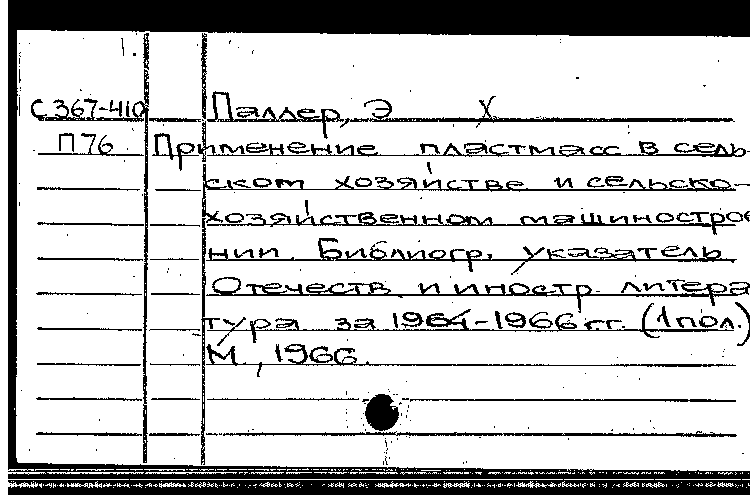 С367-410 Паллер, Э X
П76 Применение пластмасс в сель-
ском хозяйстве и сельско-
хозяйственном машинострое
нии. Библиогр. указатель.
Отечеств. и иностр. литера
тура за 1964-1966 гг. (1 пол.)
М., 1966.